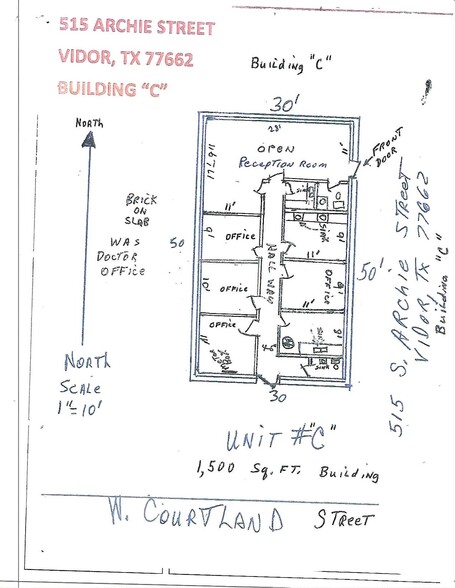 515 ARCHIE STREET
VIDOR, TX 77662
BUILDING "C"
Building "C"
30'
NORTH
28'
OPEN
RECEPTION ROOM
11'6-17'
11'
FRONT
DOOR
BRICK
ON
SLAB
WAS
DOCTOR
OFFICE
50
11'
9'
OFFICE
HALL WAY
SINK
9'
11'
50'
10'
OFFICE
OFFICE
9'
11'
OFFICE
11'
9'
4'6"
SINK
30
NORTH
SCALE
1"=10'
515 S. ARCHIE STREET
VIDOR, TX 77662
Building "C"
UNIT #"C"
1,500 Sq. FT. Building
W. COURTLAND STREET